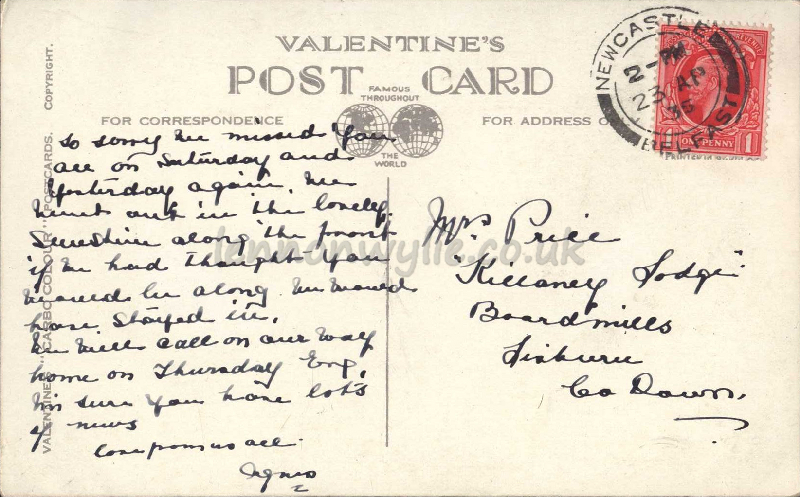 VALENTINE'S
POST CARD
FAMOUS
THROUGHOUT
THE
WORLD
FOR CORRESPONDENCE
FOR ADDRESS O
VALENTINES "CARBO COLOUR" POSTCARDS. COPYRIGHT.
NEWCASTLE
2 - PM
23 AP
36
BELFAST
ONE PENNY
1
So sorry we missed you
all on Saturday and
Yesterday again. We
went out in the lovely
Sunshine along the front
if we had thought you
would be along we would
have stayed in.
We will call on our way
home on Thursday Eng,
I'm sure you have lots
of news
Love from us all
Agnes
Mrs Price
"Killaney Lodge"
Boardmills
Lisburn
Co Down.
lennonwylie.co.uk